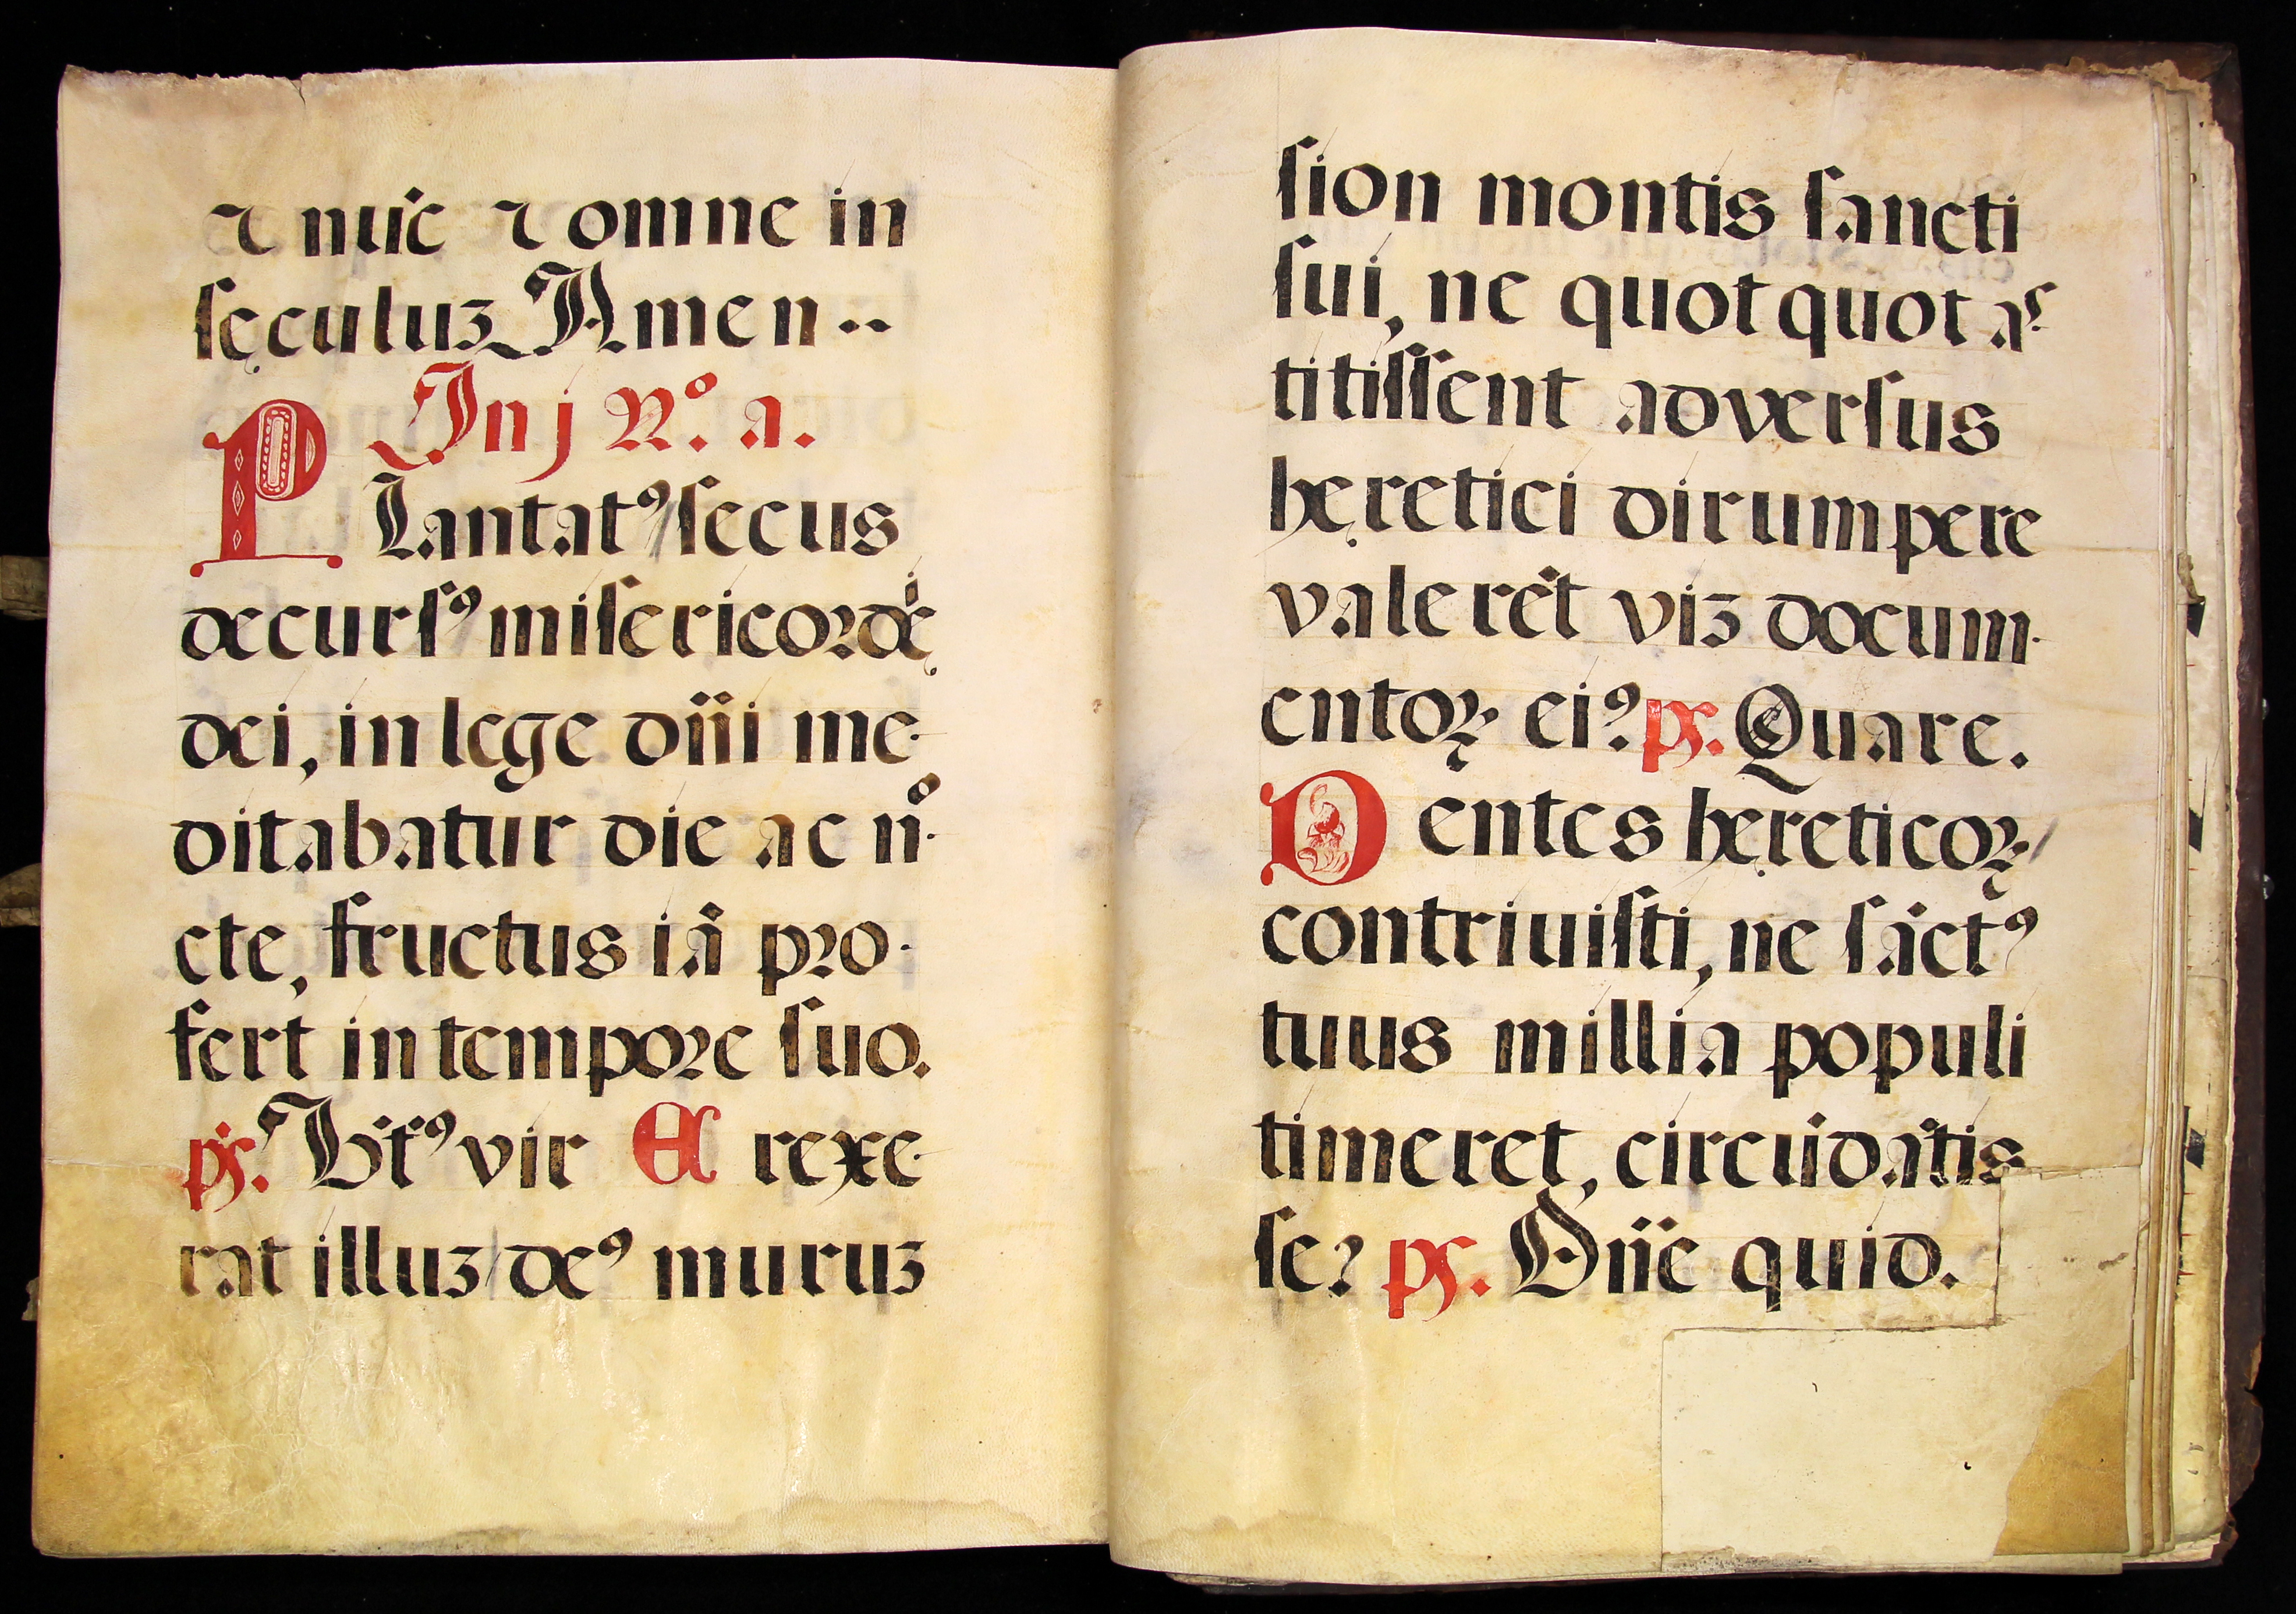 ⁊ nūc ⁊ omne in
ſęculuꝫ Amen..
In j Nº. a.
PLantatꝰ ſecus
decurſꝰ miſericordię
dei, in lege dn̄i me-
ditabatur die ac no-
cte, fructus iā pro-
fert in tempore ſuo.
ps. Bt̄ꝰ vir Er rexe-
rat illuꝫ deꝰ muruꝫ
ſion montis ſancti
ſui, ne quotquot aſ-
titiſſent adverſus
hęretici dirumpere
valerēt viꝫ docum-
entoꝝ eiꝰ ps. Quare.
Dentes hęreticoꝝ
contriuiſti, ne ſāctꝰ
tuus millia populi
timeret, circūdātis
ſe? ps. Dn̄e quid.